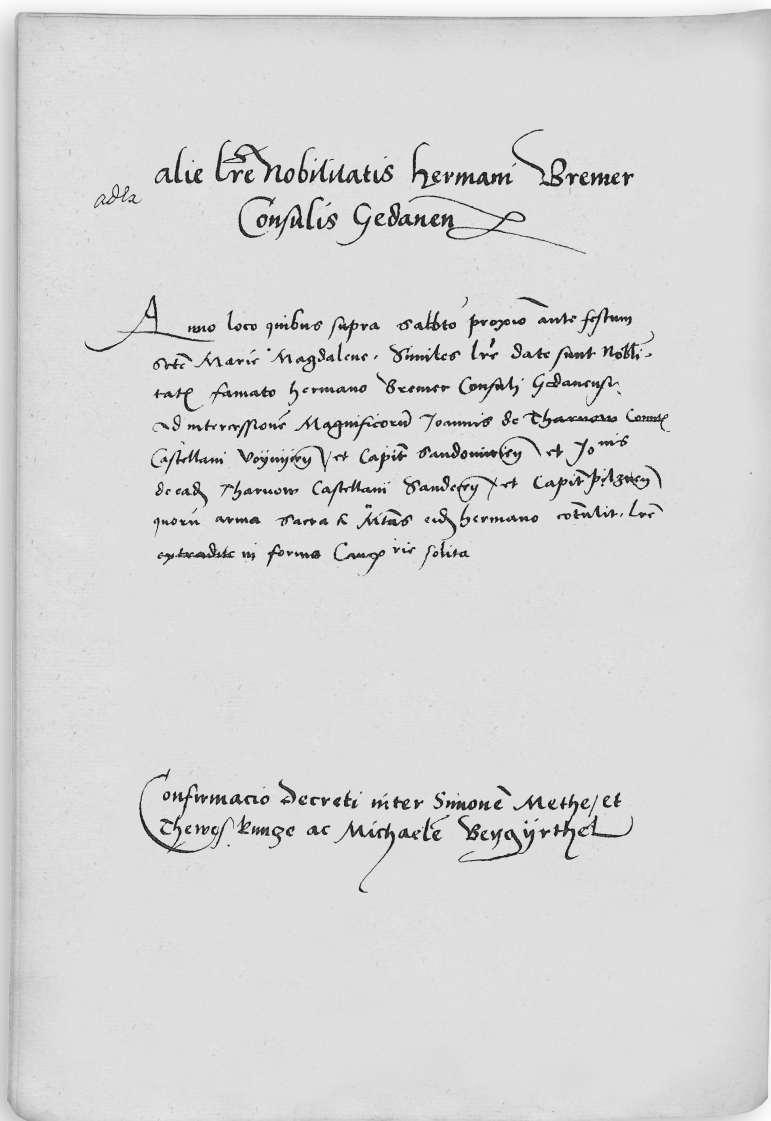 alie lr̃e Nobilitatis hermani Bremer
Consulis Gedanen
Anno loco quibus supra sabbto proxio ante festum
sctẽ Marie Magdalene. Similes lr̃e date sunt Nobli-
tatꝭ famato hermano Bremer Consuli Gedanensi
ad intercessionẽ Magnificorũ Joannis de Tharnow Comitꝭ
Castellani et Capit̃ Sandomirien et Joñis
de eadẽ Tharnow Castellani et Capit̃ Pilznen
quorũ arma sacra R Mtãs eidẽ hermano cõtulit. lr̃e
extradite in forma solita
Confirmacio Decreti inter Simonẽ Methe, et
Thewes kunge ac Michaelẽ Beygyrthel